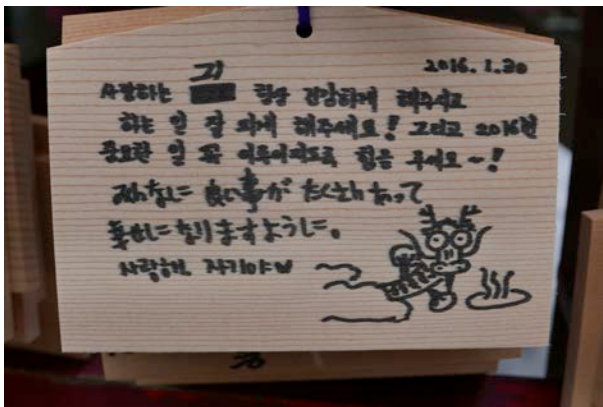 2016.1.30
그
사랑하는 항상 건강하게 해주시고
하는 일 잘 되게 해주세요! 그리고 2016년
중요한 일 꼭 이루어지도록 힘을 주세요~!
みんなに良い事がたくさんあって
幸せになりますように。
사랑해 자기야